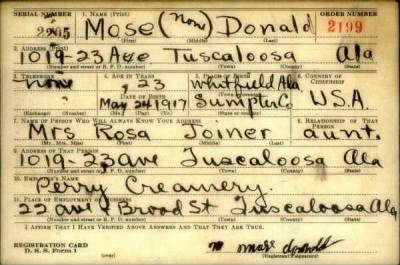 SERIAL NUMBER 1. NAME (Print) ORDER NUMBER
2205 Mose (none) Donald 2199
(First) (Middle) (Last)
2. ADDRESS (Print)
1019-23 Ave Tuscaloosa Ala
(Number and street or R. F. D. number) (Town) (County) (State)
3. TELEPHONE 4. AGE IN YEARS 5. PLACE OF BIRTH 6. COUNTRY OF CITIZENSHIP
none 23 Whitfield Ala
DATE OF BIRTH
May 24 1917 Sumpter Co U.S.A.
(Exchange) (Number) (Mo.) (Day) (Yr.) (State or country)
7. NAME OF PERSON WHO WILL ALWAYS KNOW YOUR ADDRESS 8. RELATIONSHIP OF THAT PERSON
Mrs Rosa Joiner aunt.
(Mr., Mrs., Miss) (First) (Middle) (Last)
9. ADDRESS OF THAT PERSON
1019-23 ave Tuscaloosa Ala
(Number and street or R. F. D. number) (Town) (County) (State)
10. EMPLOYER'S NAME
Perry Creamery.
11. PLACE OF EMPLOYMENT OR BUSINESS
22 ave & Broad St Tuscaloosa Ala
(Number and street or R. F. D. number) (Town) (County) (State)
I AFFIRM THAT I HAVE VERIFIED ABOVE ANSWERS AND THAT THEY ARE TRUE.
REGISTRATION CARD
D. S. S. Form 1 mose donold